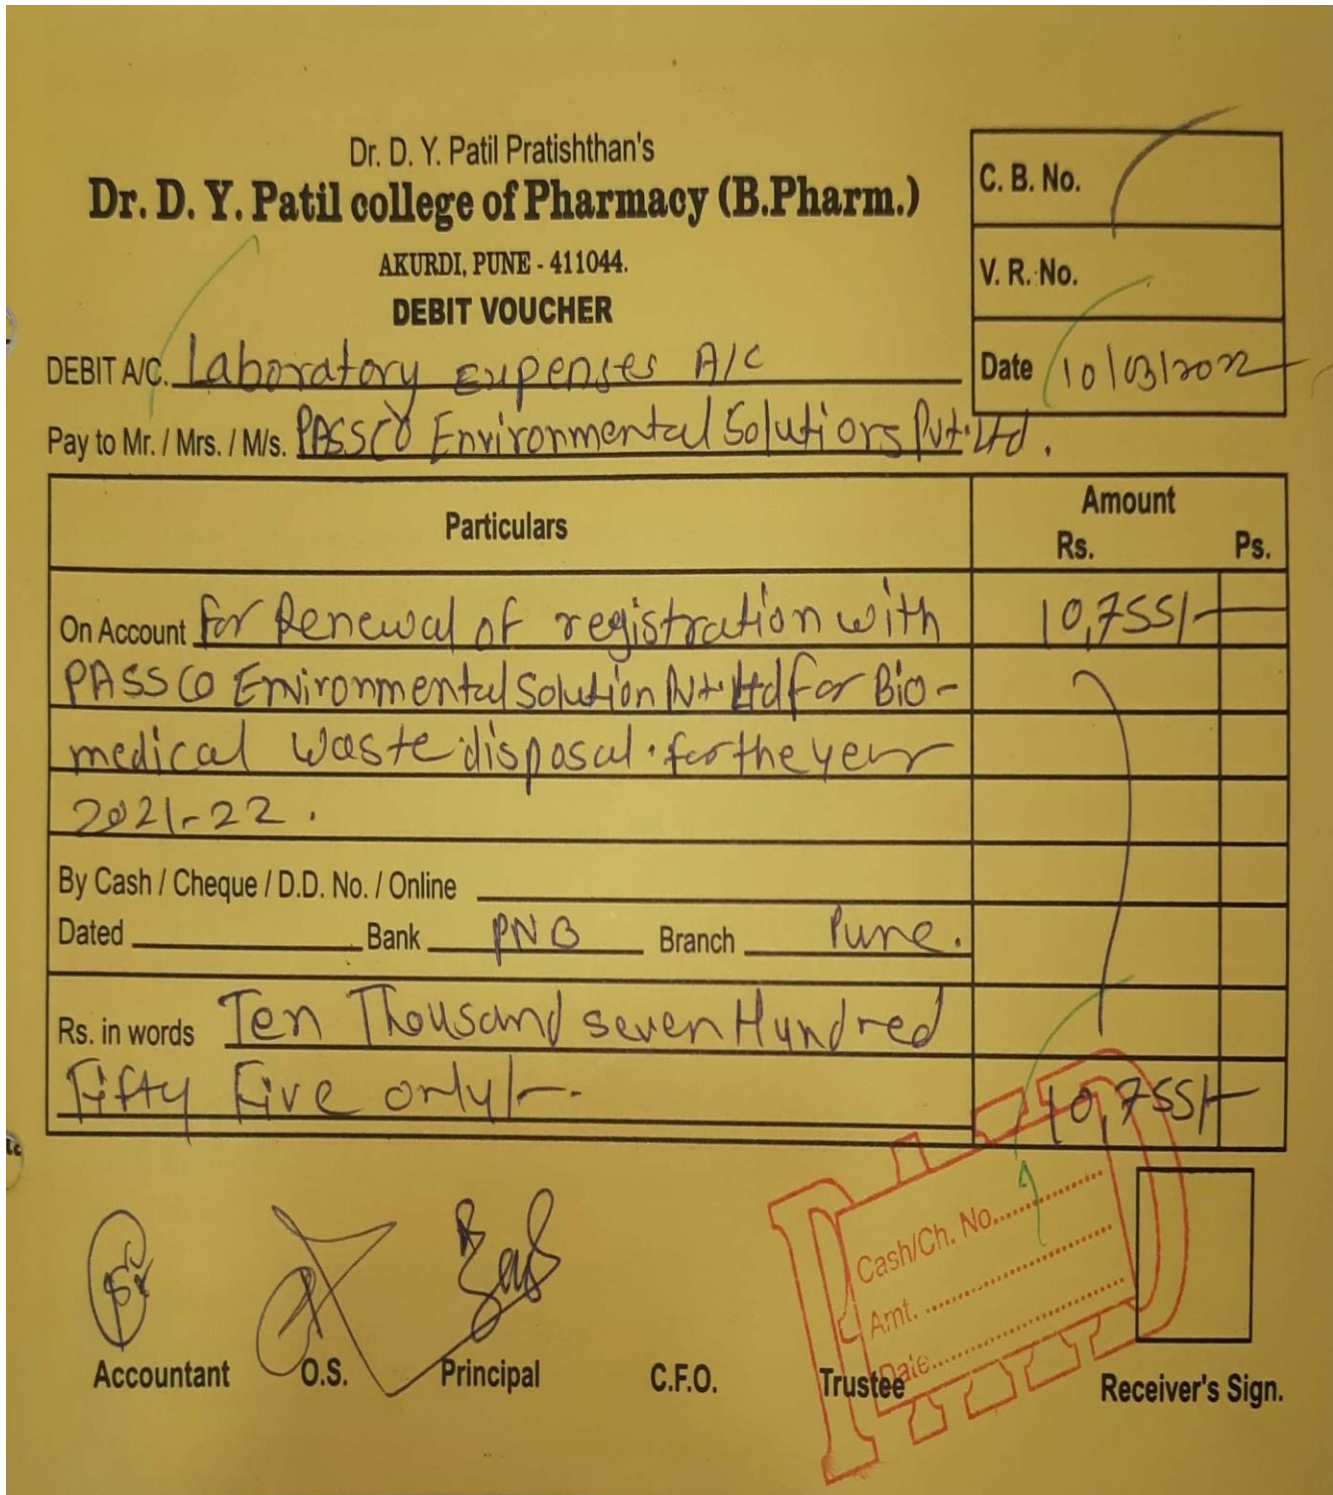 Dr. D. Y. Patil Pratishthan's
Dr. D. Y. Patil college of Pharmacy (B.Pharm.)
AKURDI, PUNE - 411044.
DEBIT VOUCHER
C. B. No.
V. R. No.
Date 10/03/2022
DEBIT A/C. Laboratory expenses A/C
Pay to Mr. / Mrs. / M/s. PASSCO Environmental Solutions Pvt. Ltd.
Particulars Amount
Rs. Ps.
On Account for Renewal of registration with 10,755/-
PASSCO Environmental Solution Pvt Ltd for Bio-
medical waste disposal. for the year
2021-22.
By Cash / Cheque / D.D. No. / Online
Dated Bank PNB Branch Pune.
Rs. in words Ten Thousand seven Hundred
Fifty Five only/-. 10,755/-
Cash/Ch. No.
Amt.
Date
Accountant O.S. Principal C.F.O. Trustee Receiver's Sign.